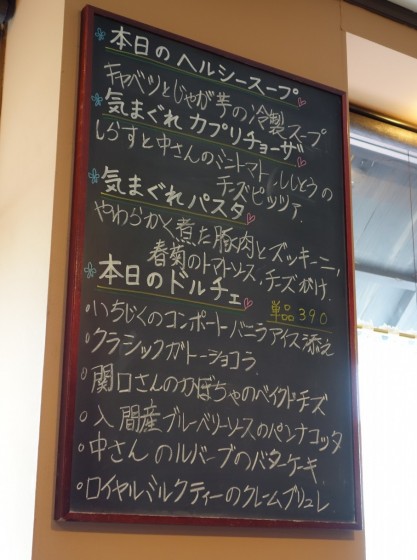 本日のヘルシースープ
キャベツとじゃが芋の冷製スープ
気まぐれカプリチョーザ
しらすと中さんのミニトマト、ししとうの
チーズピッツァ
気まぐれパスタ
やわらかく煮た豚肉とズッキーニ、
春菊のトマトソース、チーズがけ
本日のドルチェ
単品390
いちじくのコンポートバニラアイス添え
クラシックガトーショコラ
関口さんのかぼちゃのベイクドチーズ
入間産ブルーベリーソースのパンナコッタ
中さんのルバーブのバターケーキ
ロイヤルミルクティーのクレームブリュレ